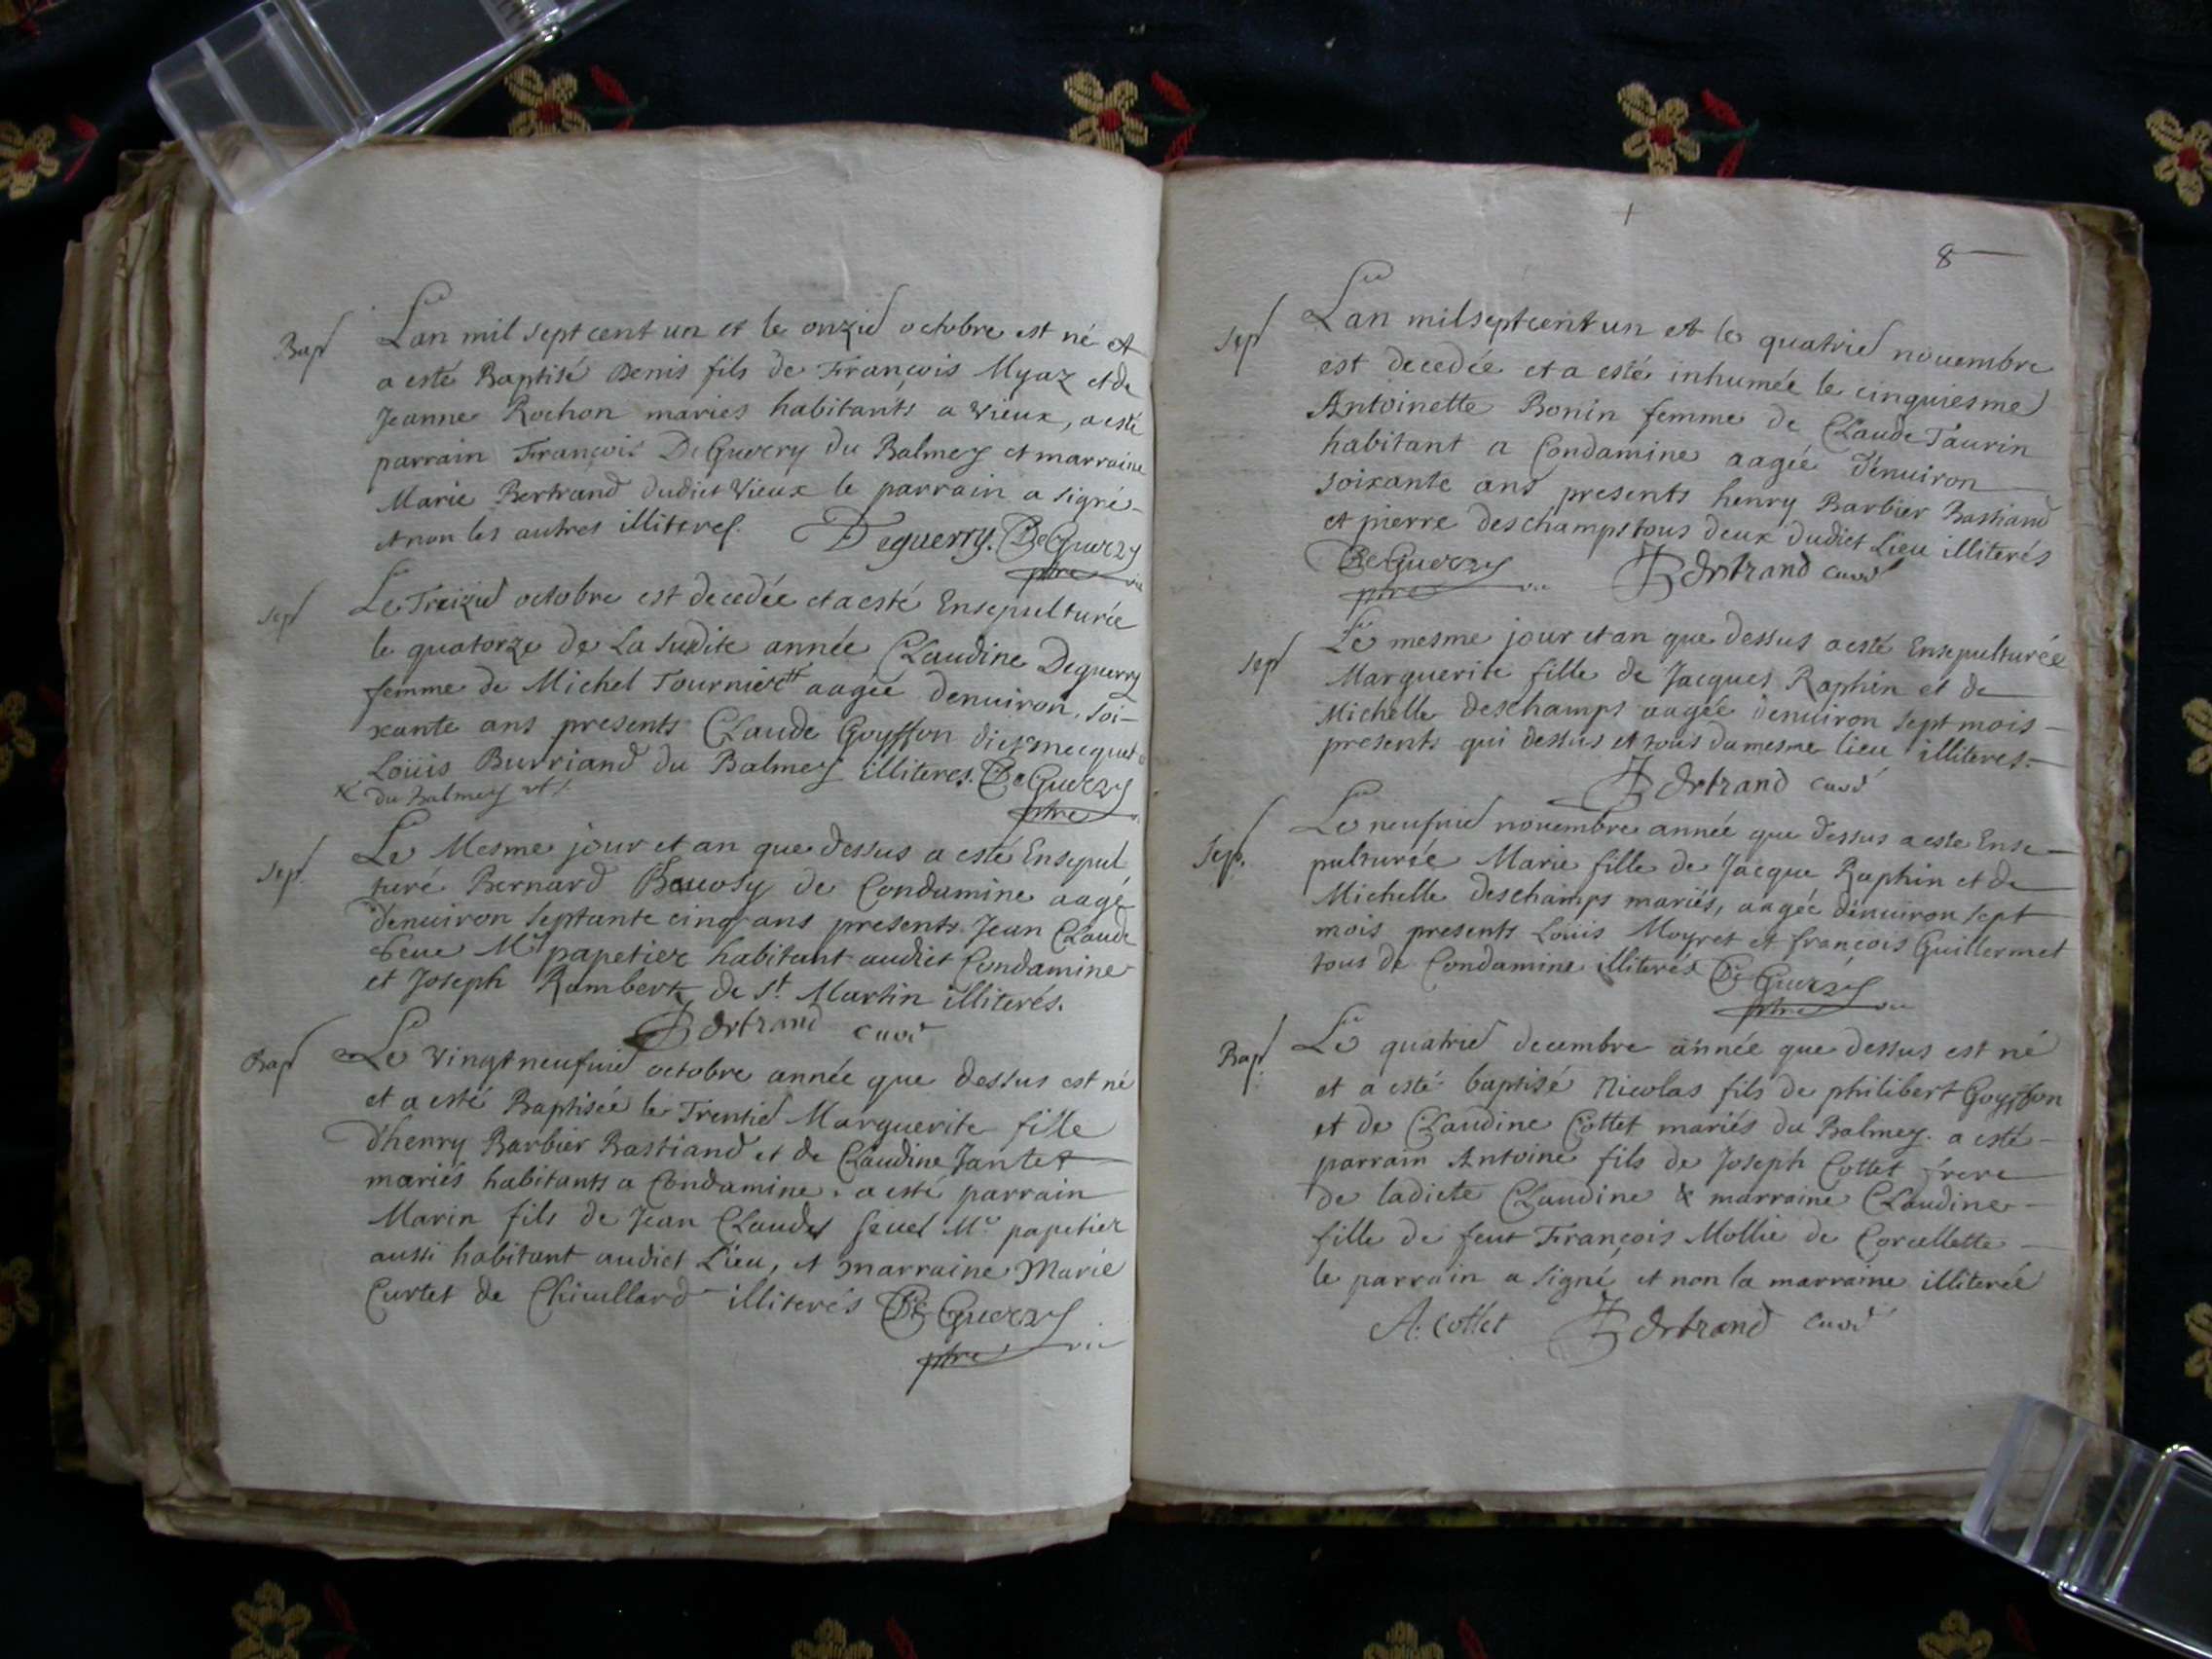 Bapt
Lan mil sept cent un et le onzie octobre est né et
a esté Baptisé Denis fils de François Myaz et de
Jeanne Rochon mariés habitants a Vieux, a esté
parrain François DeGuerry du Balmey et marraine
Marie Bertrand dudict Vieux le parrain a signé
et non les autres illiteres.
Deguerry. DeGuerry
ptre vic
Sept
Le Treizie octobre est decedée et a esté Ensepulturée
le quatorze de La sudite année Claudine Deguerry
femme de Michel Tournier aagée denuiron soi-
xante ans presents Claude Goyffon dict mecquet
Loüis Burriand du Balmey illiteres. DeGuerry
ptre
du Balmey
Sept.
Le Mesme jour et an que dessus a esté Ensepul
turé Bernard de Condamine aagé
denuiron septante cinq ans presents Jean Claude
Me papetier habitant audict Condamine
et Joseph Rambert de St. Martin illiterés.
Bertrand curé
Bapt
Le Vingt neufuie octobre année que dessus est né
et a esté Baptisée le Trentie Marguerite fille
d'henry Barbier Bastiand et de Claudine Jantet
mariés habitants a Condamine. a esté parrain
Marin fils de Jean Claude Me papetier
aussi habitant audict Lieu, et marraine Marie
Curtet de Chiuillard illiterés DeGuerry
ptre vic
8
Sept
Lan mil sept cent un et le quatrie nouembre
est decedée et a esté inhumée le cinquiesme
Antoinette Bonin femme de Claude Taurin
habitant a Condamine aagée d'enuiron
soixante ans presents henry Barbier Bastiand
et pierre deschamps tous deux dudict Lieu illiterés
DeGuerry Bertrand curé
ptre vic
Sept
Le mesme jour et an que dessus a esté Ensepulturée
Marguerite fille de Jacques Raphin et de
Michelle deschamps aagée denuiron sept mois
presents qui dessus et tous du mesme lieu illiteres.
Bertrand curé
Sep.
Le neufuie nouembre année que dessus a este Ense
pulturée Marie fille de Jacque Raphin et de
Michelle deschamps mariés, aagée denuiron sept
mois presents Loüis Moyret et françois Guillermet
tous de Condamine illiterés DeGuerry
ptre vic
Bapt
Le quatrie decembre année que dessus est né
et a esté baptisé Nicolas fils de philibert Goyffon
et de Claudine Cottet mariés du Balmey. a esté
parrain Antoine fils de Joseph Cottet frere
de ladicte Claudine & marraine Claudine
fille de feut François Mollie de Corcellette
le parrain a signé et non la marraine illiterée
A. Cottet Bertrand curé